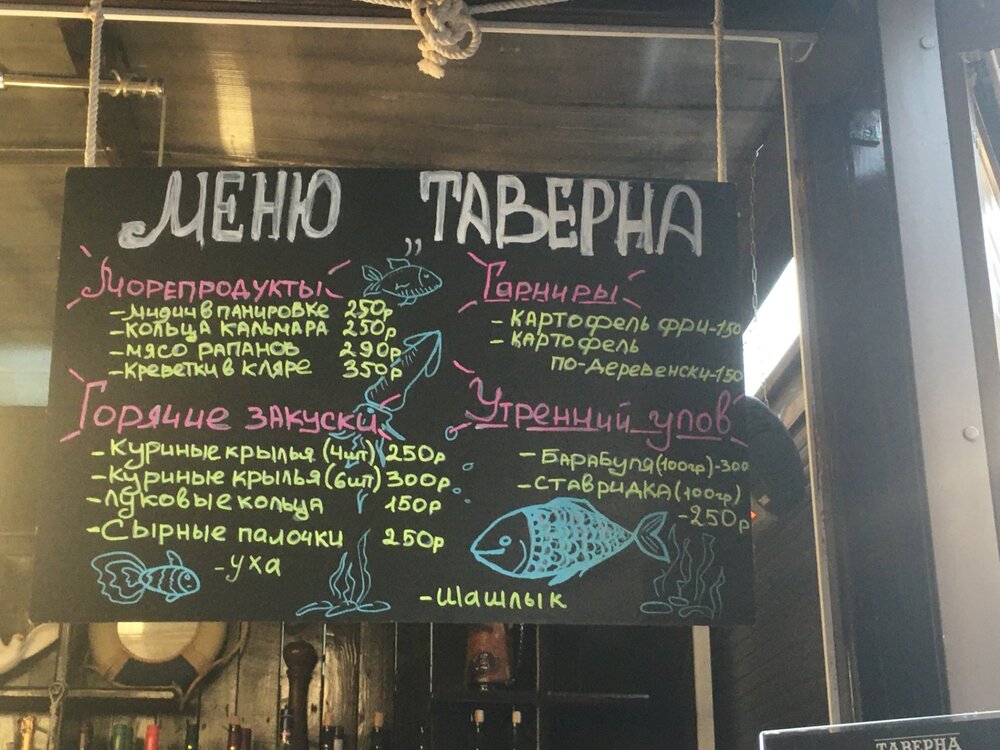 МЕНЮ ТАВЕРНА
Морепродукты
- мидии в панировке 250р
- кольца кальмара 250р
- мясо рапанов 290р
- креветки в кляре 350р
Горячие закуски
- куриные крылья (4шт) 250р
- куриные крылья (6шт) 300р
- луковые кольца 150р
- Сырные палочки 250р
- уха
Гарниры
- картофель фри - 150
- картофель
по-деревенски - 150
Утренний улов
- барабуля (100гр) - 300
- ставридка (100гр)
- 250р
- шашлык
ТАВЕРНА